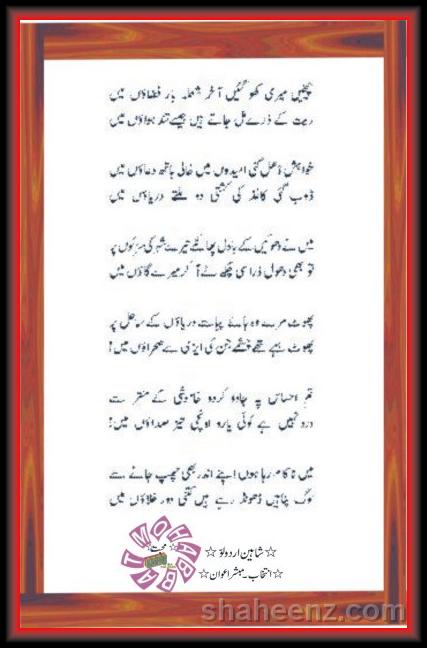 چیخیں میری کھو گئیں آخر شعلہ بار فضاؤں میں
ریت کے ذرے مل جاتے ہیں جیسے تند ہواؤں میں
خواہش ڈھل گئی امیدوں میں خالی ہاتھ دعاؤں میں
ڈوب گئی کاغذ کی کشتی دو ملتے دریاؤں میں
میں نے دھوئیں کے بادل پھانکے تیرے شہر کی سڑکوں پر
تو بھی دھول ذرا سی چکھ لے آ کر میرے گاؤں میں
پھوٹ مرے وہ ہائے پیاسے دریاؤں کے ساحل پر
پھوٹ بہے تھے چشمے جن کی ایڑی سے صحراؤں میں!
تم احساس پہ جادو کر دو خاموشی کے منتر سے
درد نہیں ہے کوئی یارو اونچی تیز صداؤں میں!
میں ناکام رہا ہوں اپنے اندر بھی چھپ جانے سے
لوگ پناہیں ڈھونڈ رہے ہیں کتنی دور خلاؤں میں
☆ شاہین اردو لؤ ☆
☆ انتخاب ۔ مبشر اعوان ☆
محبت
MOHABBAT
shaheenz.com